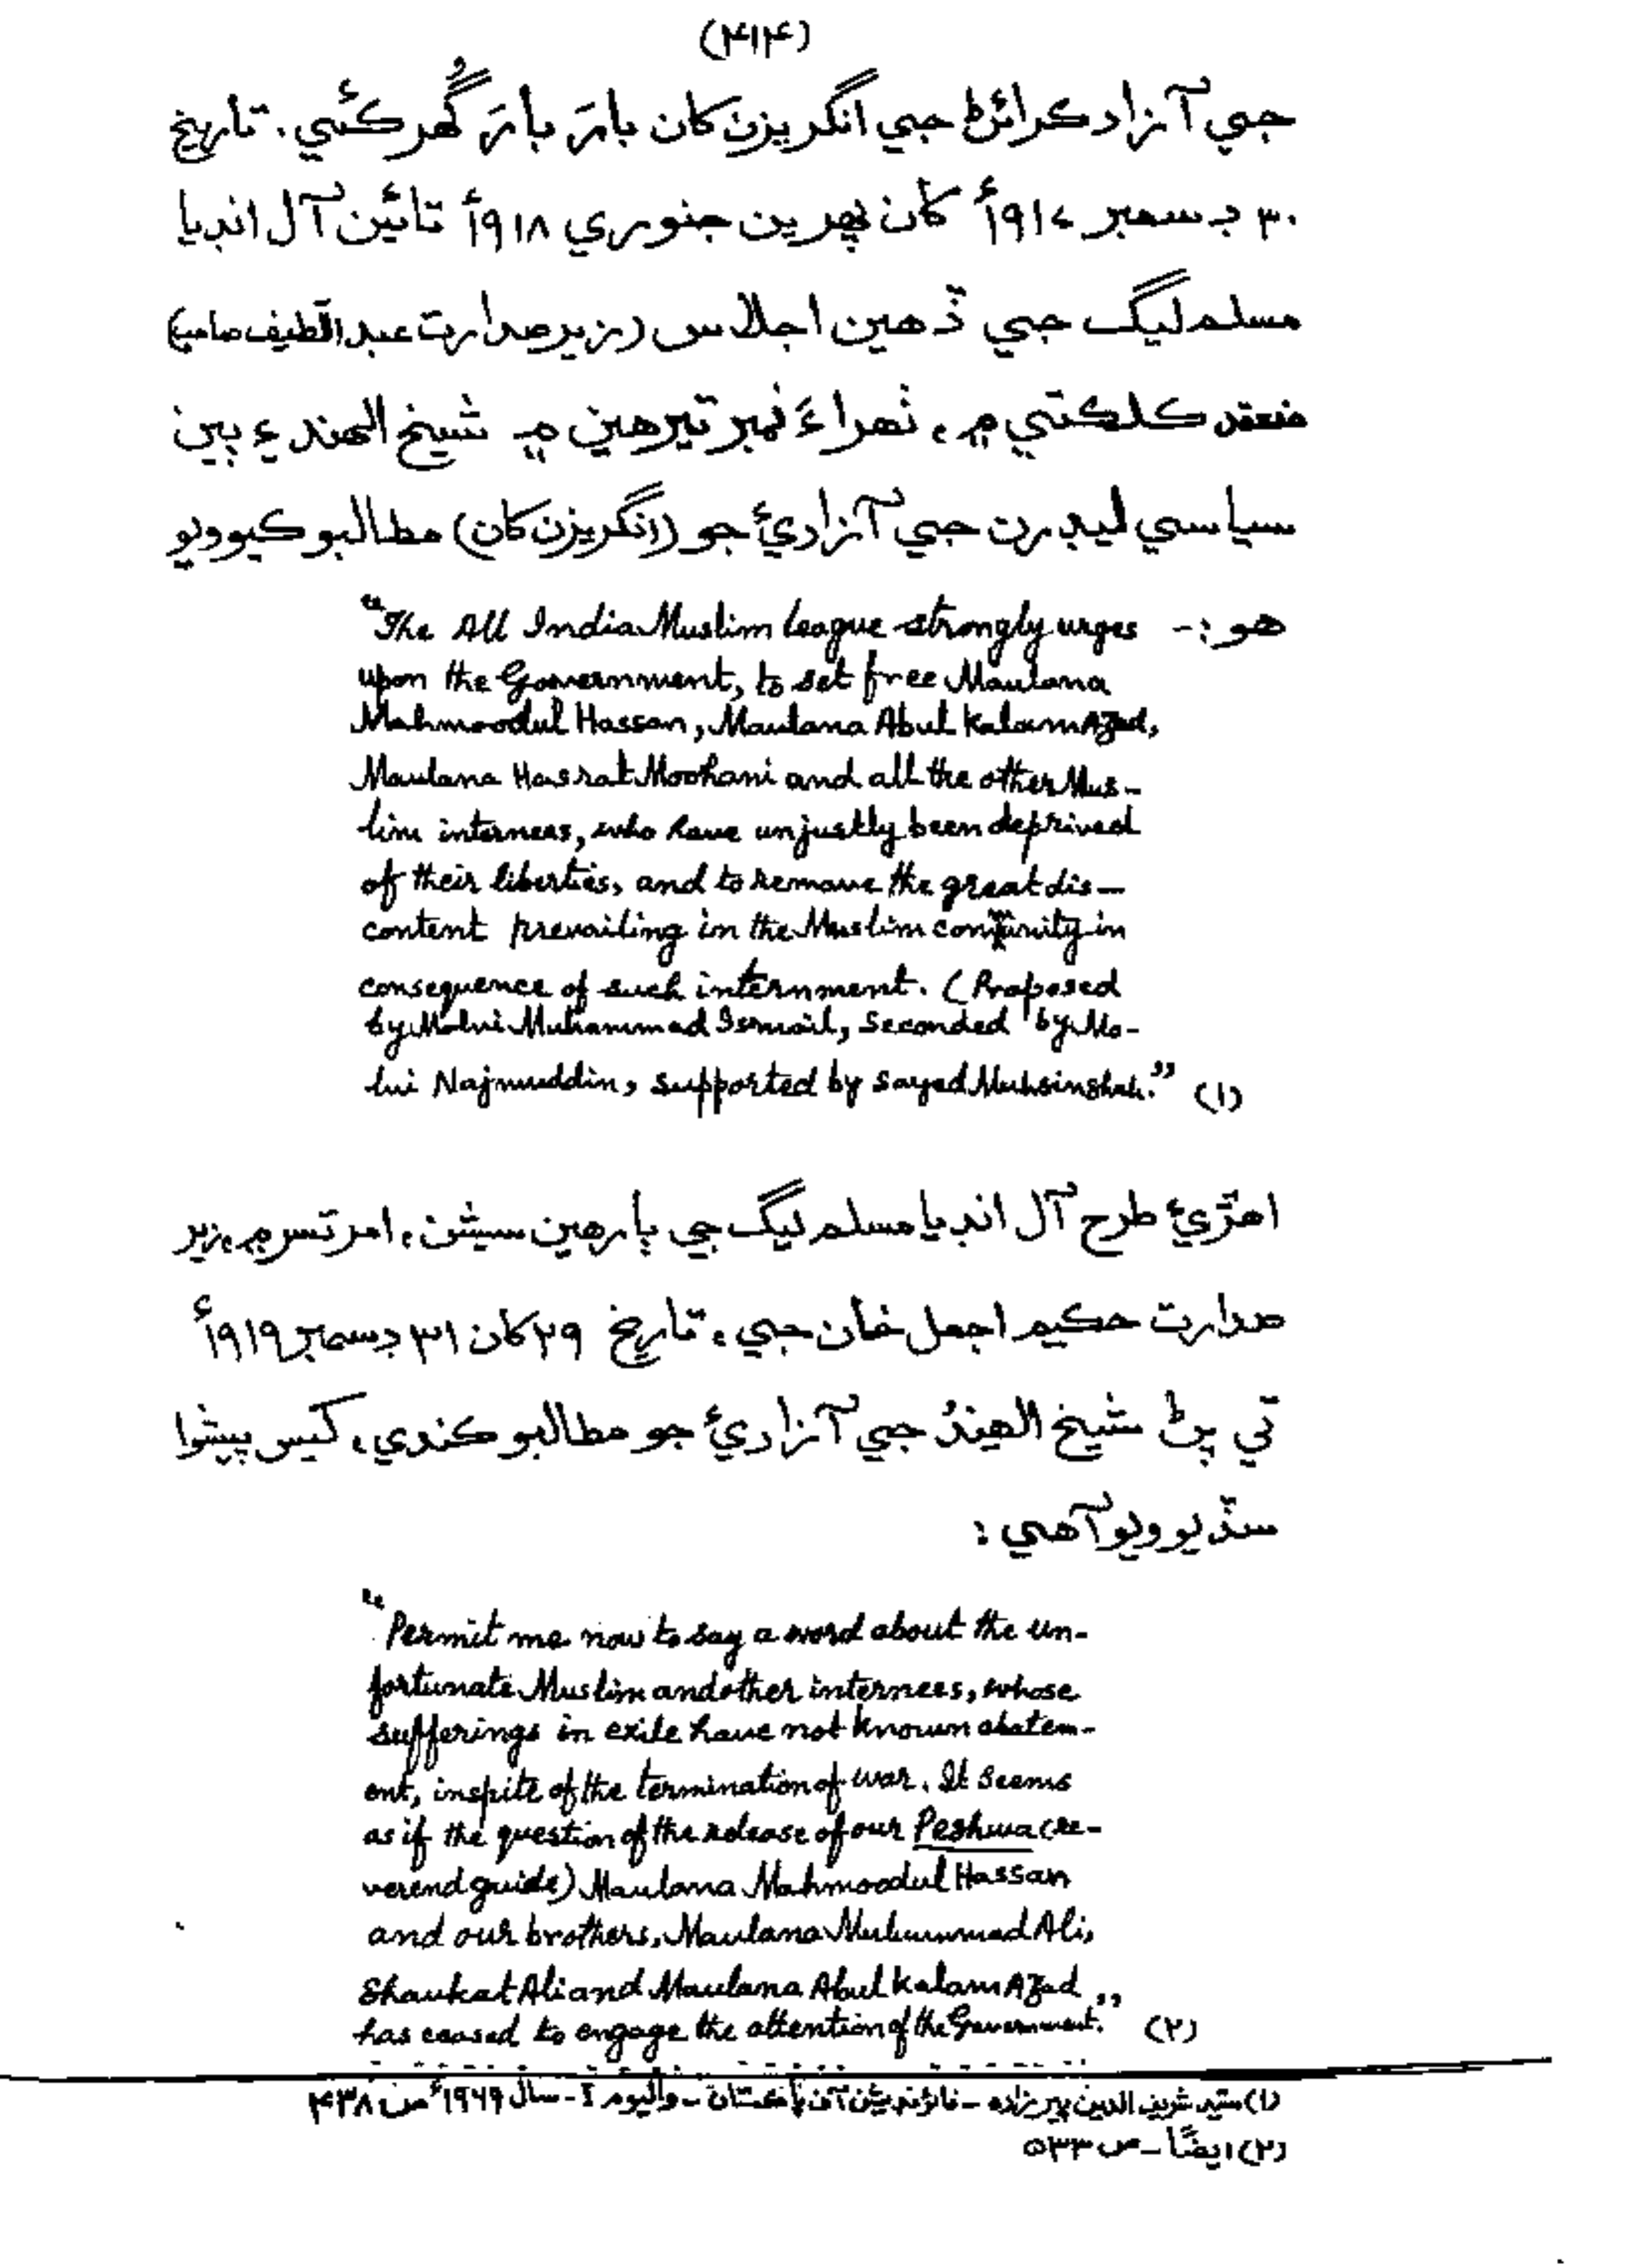 (۴۱۴)
جي آزاد ڪرائڻ جي انگريزن کان بارَ بارَ گُهر ڪئي. تاريخ
۳۰ ڊسمبر ۱۹۱۷ع کان پهرين جنوري ۱۹۱۸ع تائين آل انڊيا
مسلم ليگ جي ڏهين اجلاس (زير صدارت عبداللطيف صاحب)
منعقد ڪلڪتي ۾، ٺهراءَ نمبر تيرهين ۾ شيخ الهند ۽ ٻين
سياسي ليڊرن جي آزاديءَ جو (انگريزن کان) مطالبو ڪيو ويو
هو:-
“The All India Muslim League strongly urges
upon the Government, to set free Maulana
Mahmoodul Hassan, Maulana Abul Kalam Azad,
Maulana Hasrat Moohani and all the other Mus-
lim internees, who have unjustly been deprived
of their liberties, and to remove the great dis-
content prevailing in the Muslim community in
consequence of such internment. (Proposed
by Molvi Muhammad Ismail, Seconded by Mo-
lvi Najmuddin, supported by Sayed Muhsinshah.” (۱)
اهڙيءَ طرح آل انڊيا مسلم ليگ جي ٻارهين سيشن، امرتسر ۾، زير
صدارت حڪيم اجمل خان جي، تاريخ ۲۹ کان ۳۱ ڊسمبر ۱۹۱۹ع
تي پڻ شيخ الهندؒ جي آزاديءَ جو مطالبو ڪندي، کيس پيشوا
سڏيو ويو آهي:
“Permit me now to say a word about the un-
fortunate Muslim and other internees, whose
sufferings in exile have not known abatem-
ent, inspite of the termination of war. It seems
as if the question of the release of our Peshwa (re-
verend guide) Maulana Mahmoodul Hassan
and our brothers, Maulana Muhammad Ali,
Shaukat Ali and Maulana Abul Kalam Azad
has ceased to engage the attention of the Government.” (۲)
(۱) سيد شريف الدين پيرزاده - فائونڊيشن آف پاڪستان - واليوم I - سال ۱۹۶۹ع ص ۴۳۸
(۲) ايضًا - ص ۵۳۳